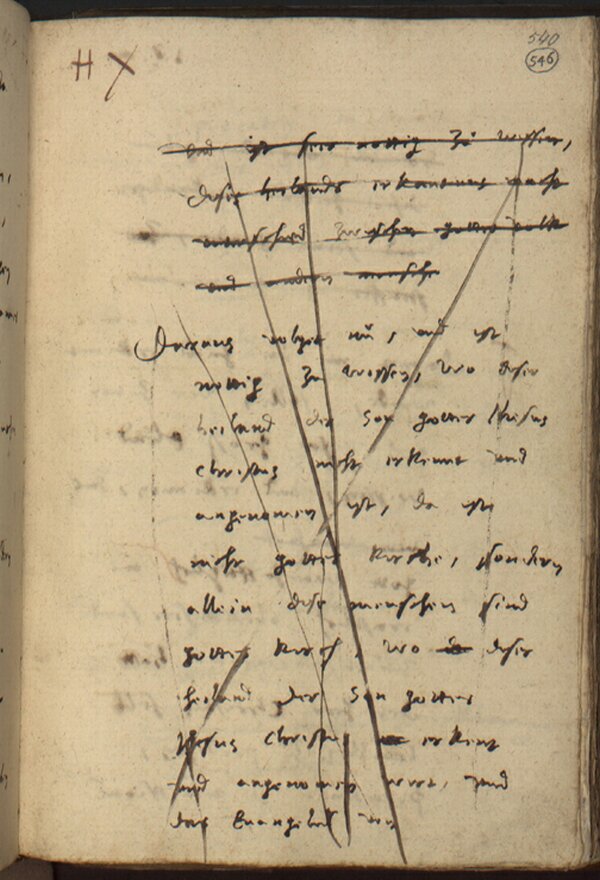 540
546
H X
und ist seer nottig zu wissen,
diser heilands erkantnus macht
unterschied zwischen gottes volk
und andern mensche
Daraus volget nu, und ist
nottig zu wissen, wo diser
heiland der Son gottes Jhesus
christus nicht erkennt und
angenomen ist, da ist
nicht gottes kirche, sondern
allein dise menschen sind
gottes kirch, wo diser
heiland der Son gottes
Jhesus Christus erkent
und angenomen wirt, und
das Euangelium